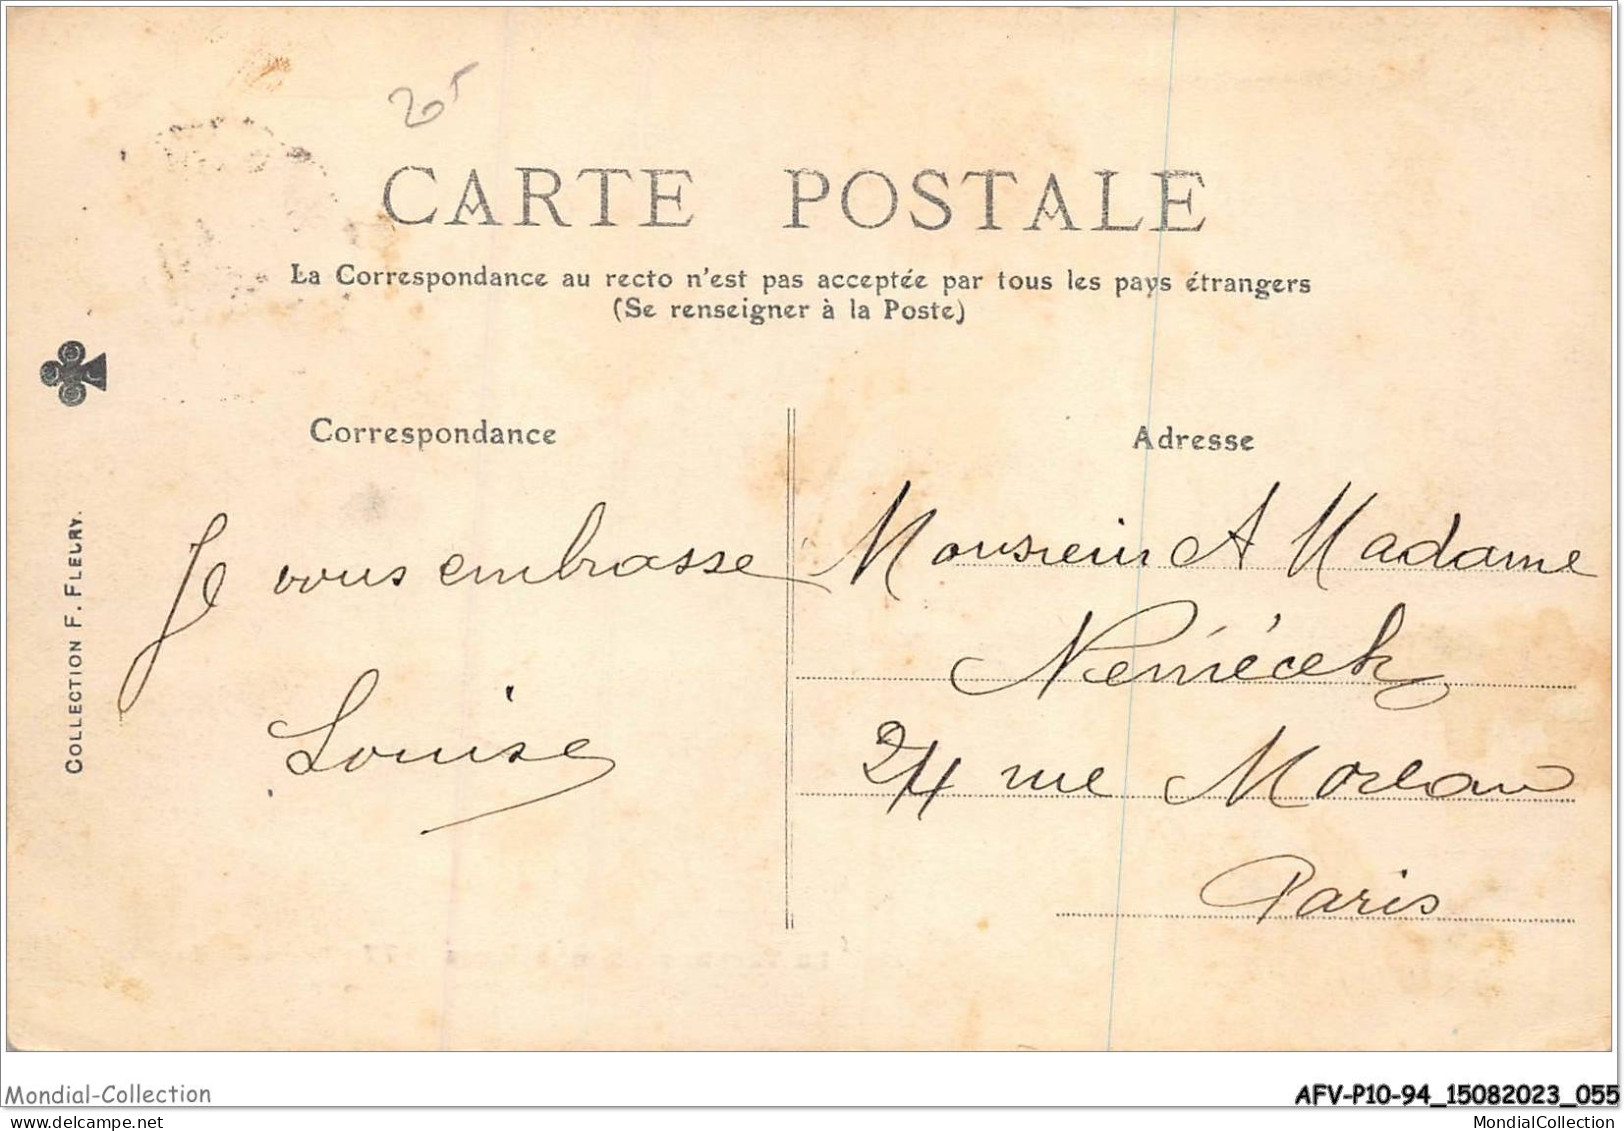 20⁵
CARTE POSTALE
La Correspondance au recto n'est pas acceptée par tous les pays étrangers
(Se renseigner à la Poste)
Correspondance
Adresse
COLLECTION F. FLEURY.
Je vous embrasse
Louise
Monsieur & Madame
Neméček
24 rue Moreau
Paris
Mondial-Collection
AFV-P10-94_15082023_055
MondialCollection
MondialCollection